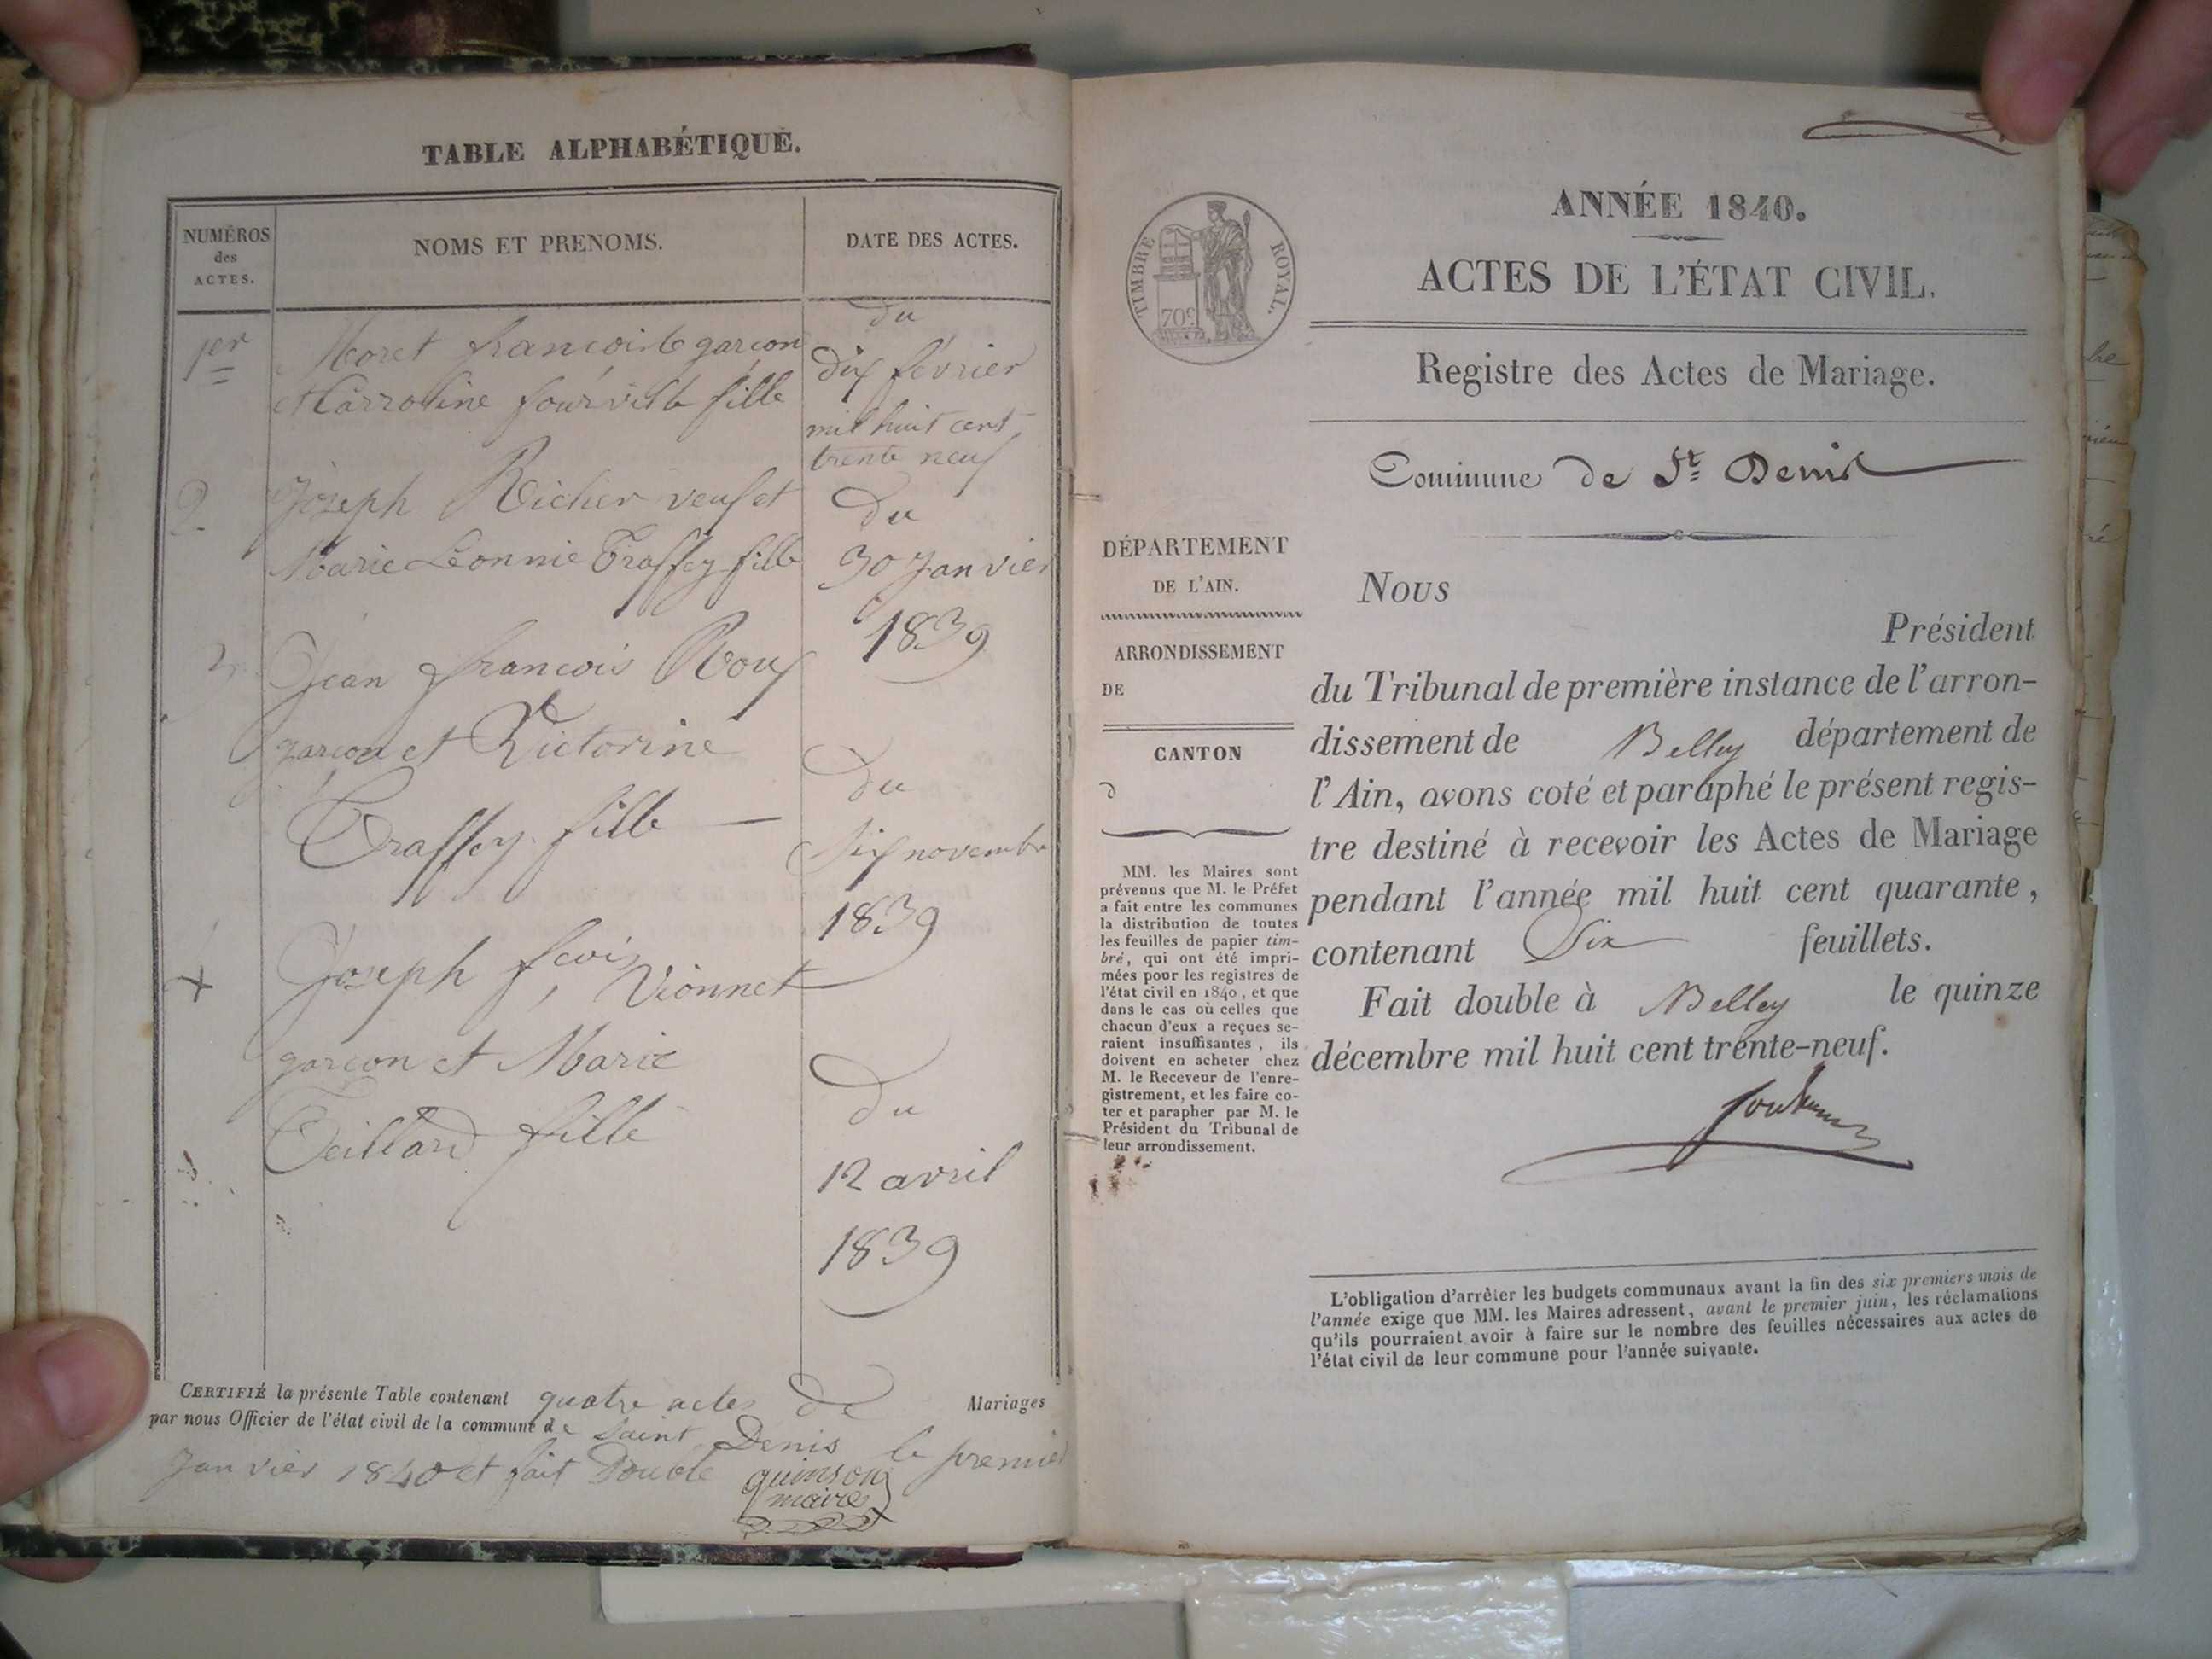 TABLE ALPHABÉTIQUE.
NUMÉROS
des
ACTES.
NOMS ET PRENOMS.
DATE DES ACTES.
1er
Moret francois garçon
et Carroline fourville fille
du
dix février
mil huit cent
trente neuf
2.
Joseph Richer veuf et
Marie Léonnie Traffey fille
du
30 Janvier
1839
3
Jean francois Roux
garcon et Victorine
Traffey fille
du
Six novembre
1839
4
Joseph fcois Vionnet
garcon et Marie
Teillard fille
du
12 avril
1839
CERTIFIÉ la présente Table contenant quatre actes de Mariages
par nous Officier de l'état civil de la commune de Saint Denis le premier
Janvier 1840 et fait Double
quinson
maire
ANNÉE 1840.
ACTES DE L'ÉTAT CIVIL.
TIMBRE ROYAL.
70c
Registre des Actes de Mariage.
Commune de St Denis
DÉPARTEMENT
DE L'AIN.
ARRONDISSEMENT
DE
CANTON
d
MM. les Maires sont
prévenus que M. le Préfet
a fait entre les communes
la distribution de toutes
les feuilles de papier tim-
bré, qui ont été impri-
mées pour les registres de
l'état civil en 1840, et que
dans le cas où celles que
chacun d'eux a reçues se-
raient insuffisantes, ils
doivent en acheter chez
M. le Receveur de l'enre-
gistrement, et les faire co-
ter et parapher par M. le
Président du Tribunal de
leur arrondissement.
Nous
Président
du Tribunal de première instance de l'arron-
dissement de Belley département de
l'Ain, avons coté et paraphé le présent regis-
tre destiné à recevoir les Actes de Mariage
pendant l'année mil huit cent quarante,
contenant Six feuillets.
Fait double à Belley le quinze
décembre mil huit cent trente-neuf.
L'obligation d'arrêter les budgets communaux avant la fin des six premiers mois de
l'année exige que MM. les Maires adressent, avant le premier juin, les réclamations
qu'ils pourraient avoir à faire sur le nombre des feuilles nécessaires aux actes de
l'état civil de leur commune pour l'année suivante.